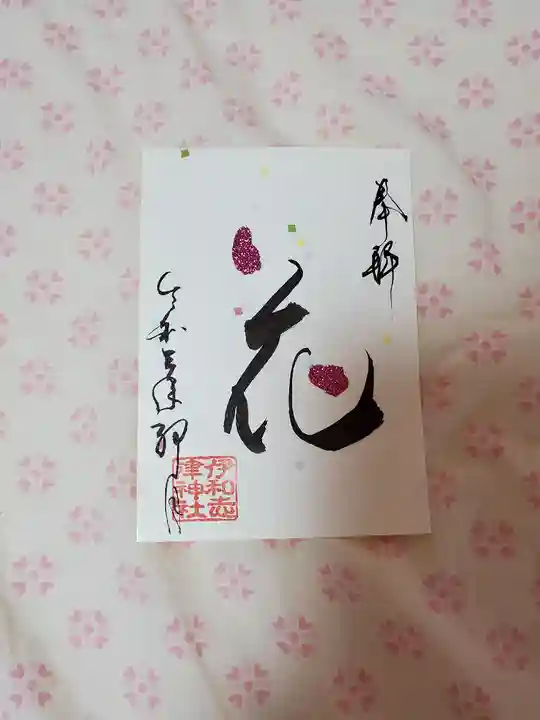 奉拝
花
令和五年卯月
伊和志津神社